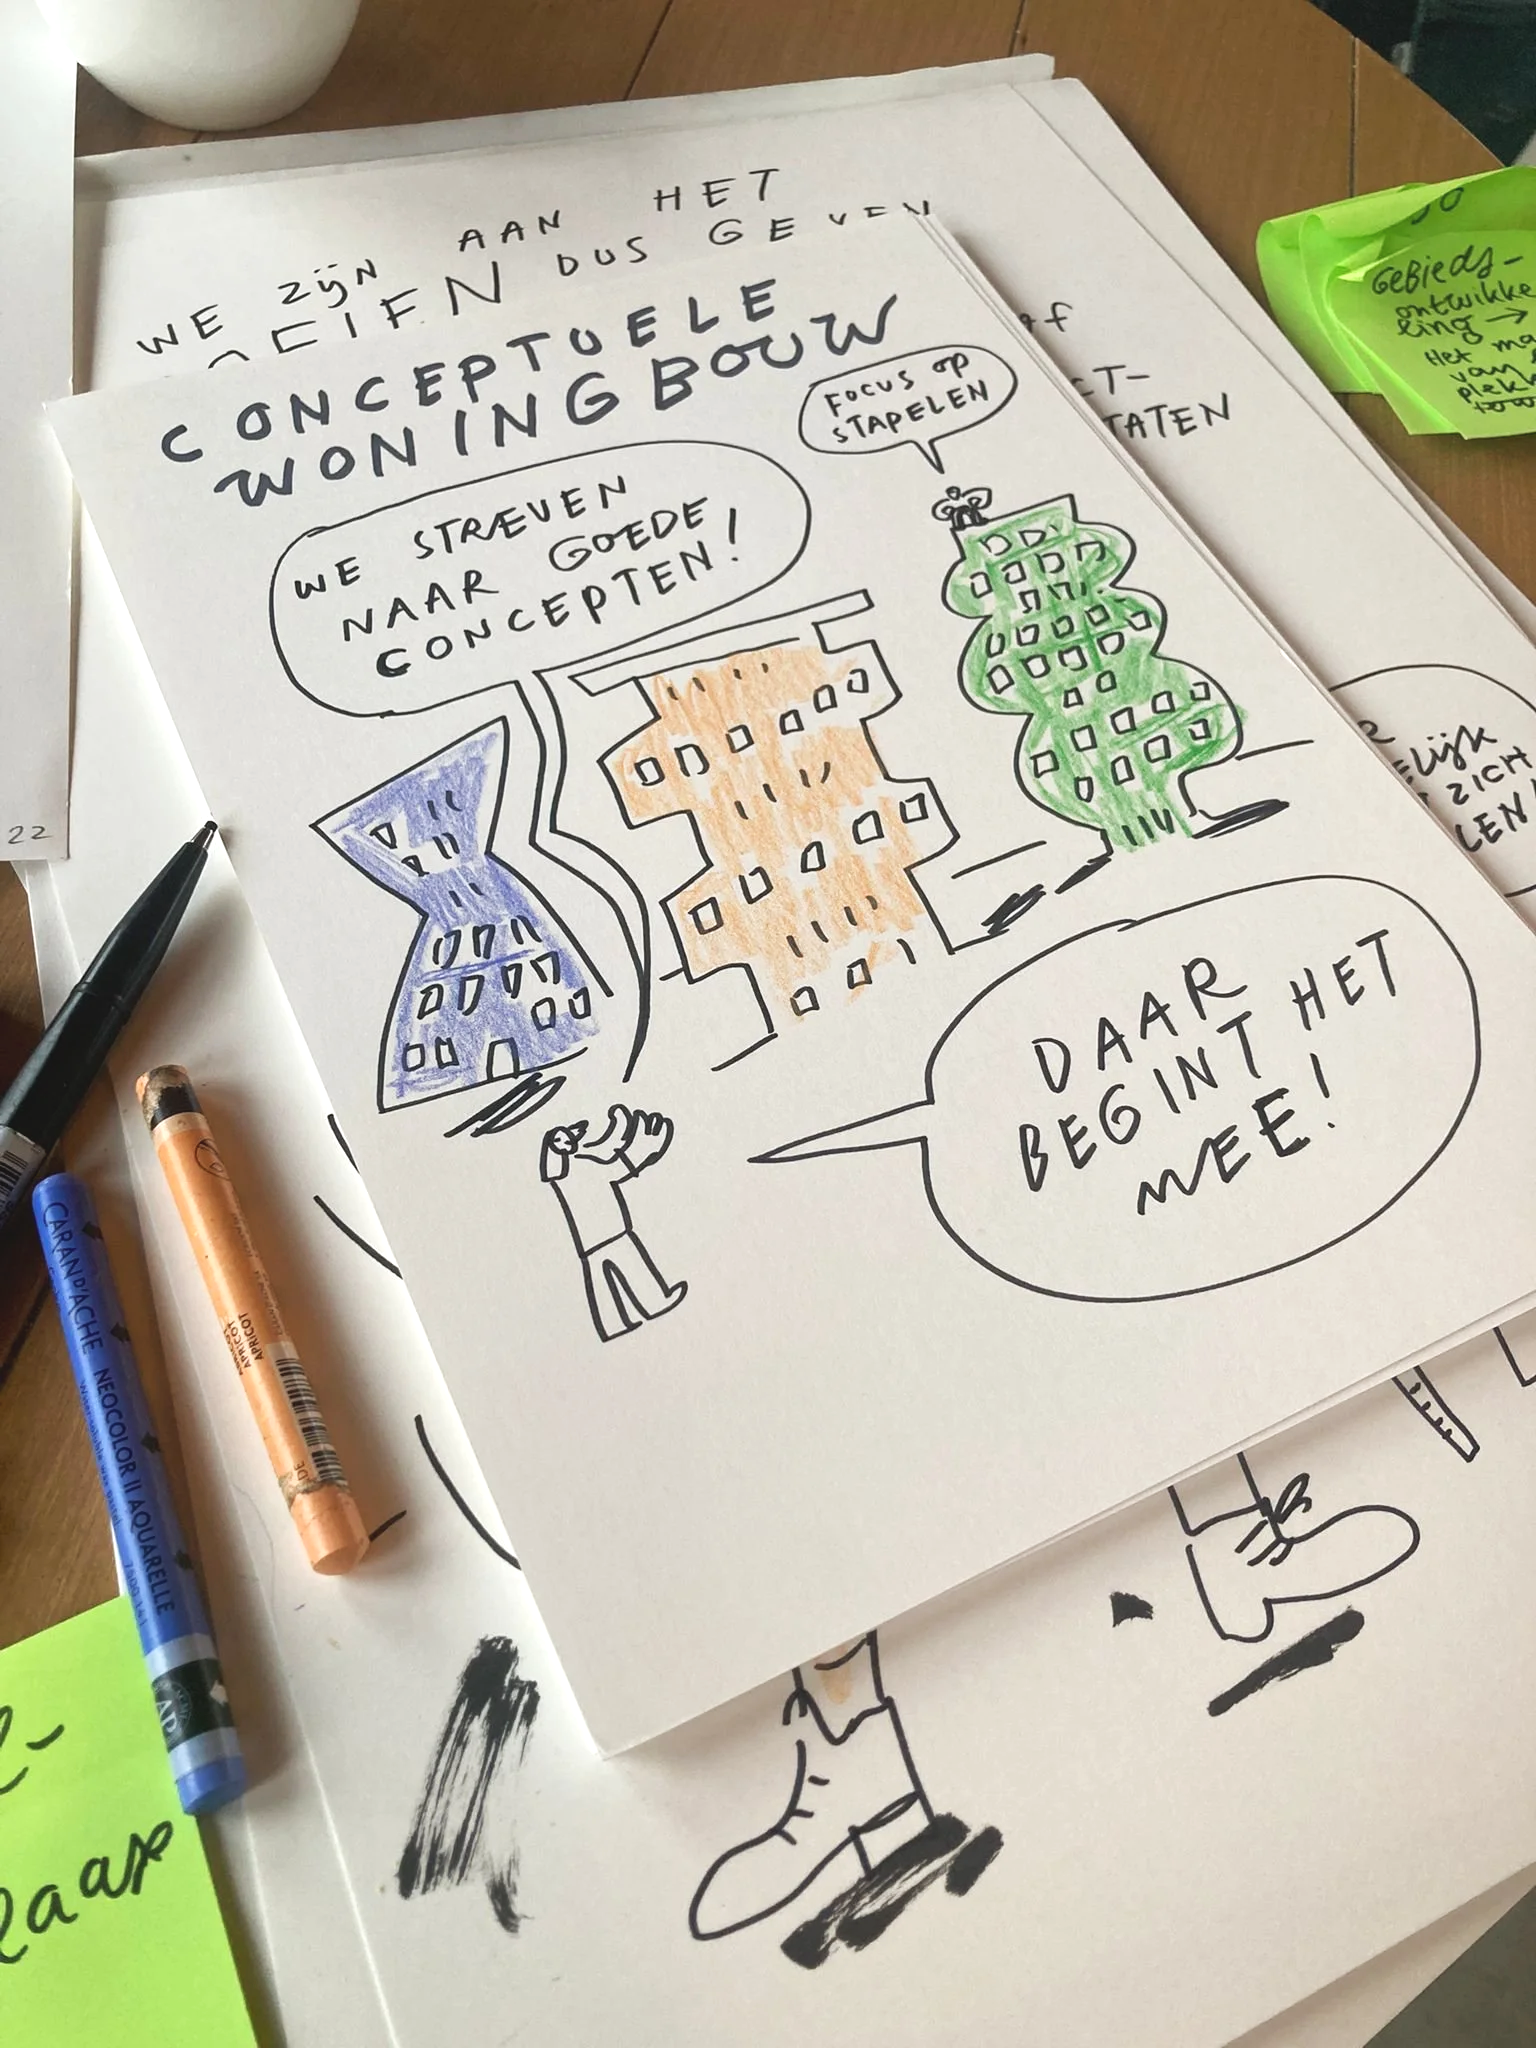 WE ZIJN AAN HET
DUS GEVEN
CONCEPTUELE
WONINGBOUW
FOCUS OP
STAPELEN
WE STRÆVEN
NAAR GOEDE
CONCEPTEN!
DAAR
BEGINT HET
MEE!
TATEN
GEBIEDS-
ontwikke
ling →
Het ma
van
plek
ELIJK
ZICH
LEN!
22
CARAN D'ACHE NEOCOLOR II AQUARELLE
APRICOT
APRICOT